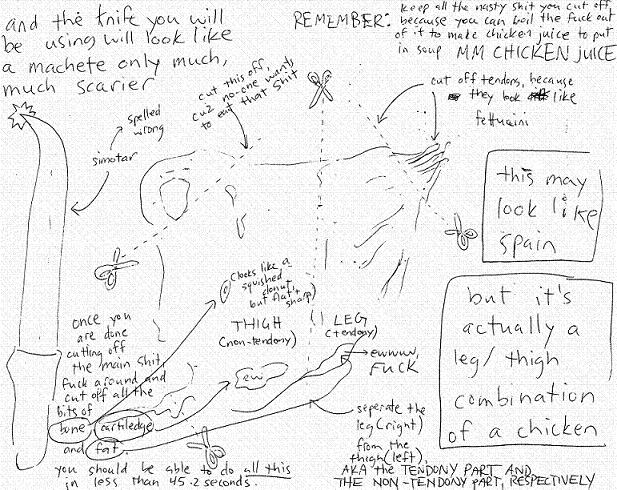 and the knife you will
be using will look like
a machete only much,
much scarier
REMEMBER: keep all the nasty shit you cut off,
because you can boil the fuck out
of it to make chicken juice to put
in soup MM CHICKEN JUICE
spelled
wrong
simotar
cut this off,
cuz no-one wants
to eat that shit
cut off tendons, because
they look like
fettucini
this may
look like
spain
but it's
actually a
leg/thigh
combination
of a chicken
(looks like a
squished
donut,
but flat &
sharp)
THIGH
(non-tendony)
LEG
(tendony)
ew
ewwww,
FUCK
once you
are done
cutting off
the main shit
fuck around and
cut off all the
bits of
bone cartiledge
and fat
you should be able to do all this
in less than 45.2 seconds.
seperate the
leg(right)
from the
thigh(left),
AKA the TENDONY PART AND
THE NON-TENDONY PART, RESPECTIVELY